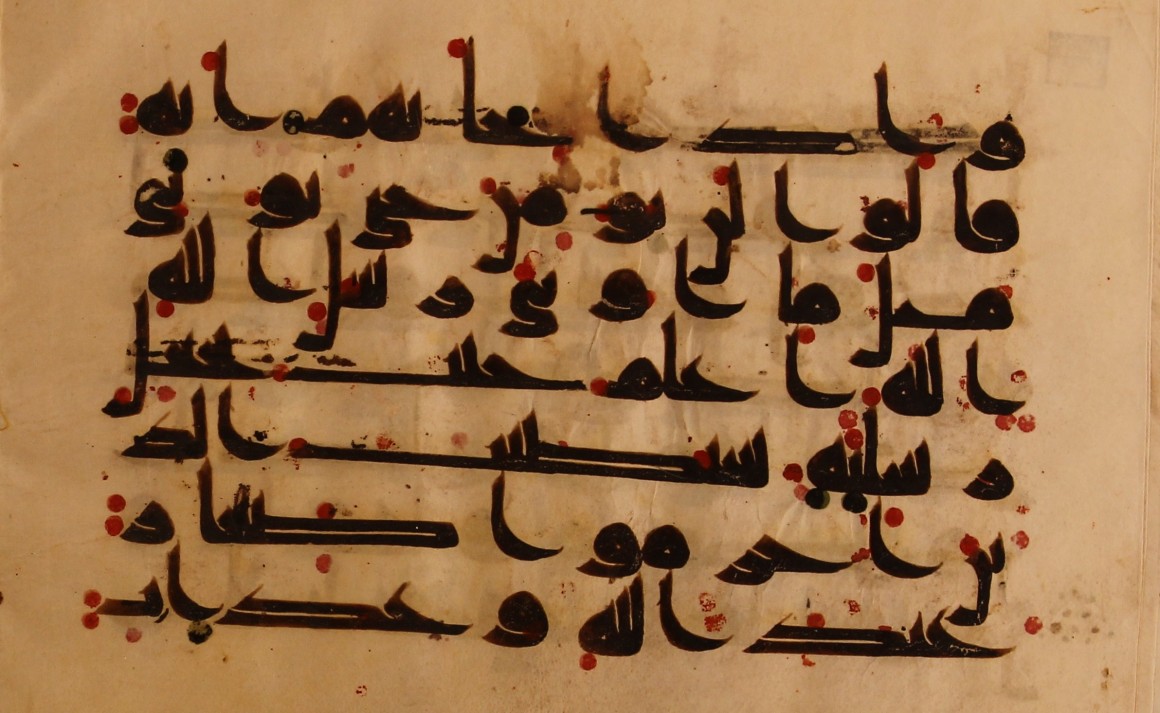 واذا جاتهم اية
قالوا لن نومن حتى نوتى
مثل ما اوتى رسل الله
الله اعلم حيث يجعل
رسلته سيصيب الذ
ين اجرموا صغار
عند الله وعذاب